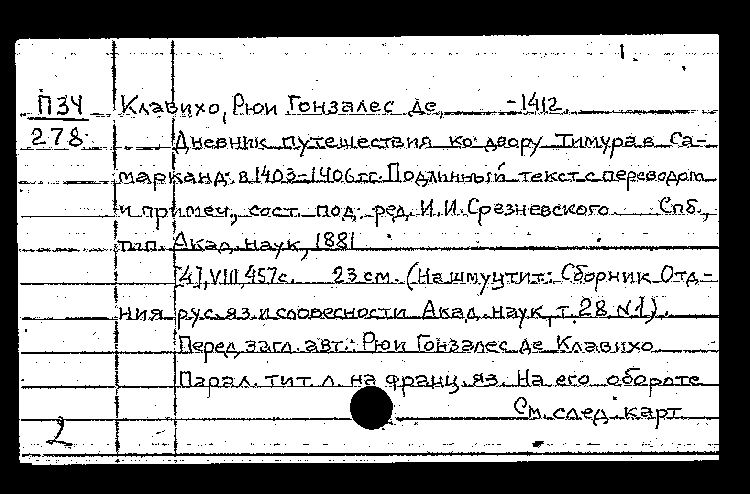 1.
П34 Клавихо, Рюи Гонзалес де, -1412.
278 Дневник путешествия ко двору Тимура в Са-
марканд в 1403-1406 гг. Подлинный текст с переводом
и примеч., сост. под ред. И.И. Срезневского Спб.,
тип. Акад. наук, 1881
[4], VIII, 457с. 23 см. (На шмуцтит: Сборник Отд-
ния рус. яз. и словесности Акад. наук, т. 28 №1).
Перед загл. авт.: Рюи Гонзалес де Клавихо
Парал. тит. л. на франц. яз. На его обороте
См. след. карт
2